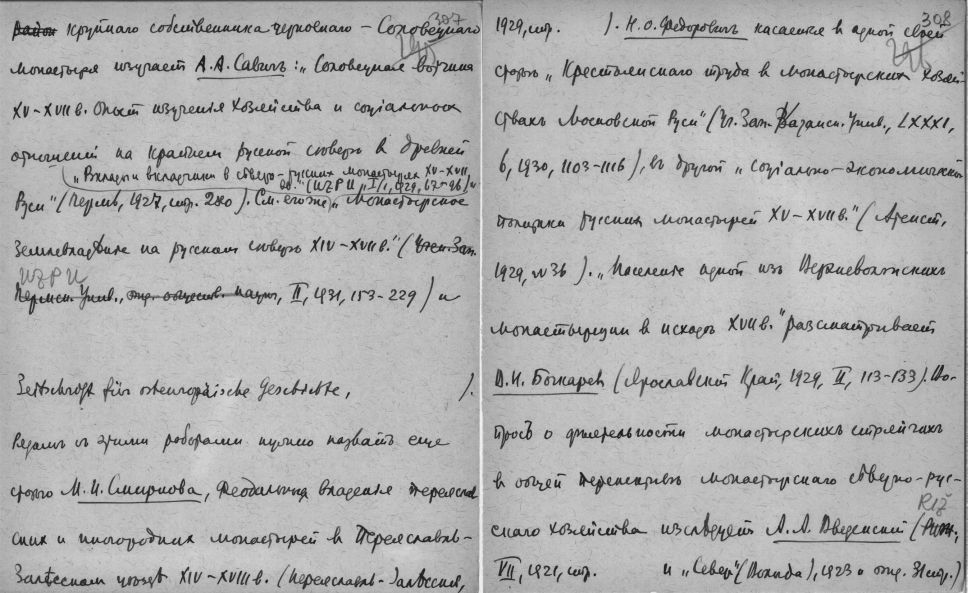 307
291
район крупнаго собственника церковнаго – Соловецкаго
монастыря изучает А.А. Савич: „Соловецкая вотчина
XV–XVII в. Опыт изучения хозяйства и соціальных
отношений на крайнем русском сѣверѣ в древней
„Вклады и вкладчики в сѣверо-русских монастырях XV–XVII
вв." (ИЗРИ „I/1, 1929, 67–96) и
Руси" (Пермь, 1927, стр. 280). См. его же, „Монастырское
Землевладѣніе на русском сѣверѣ XIV–XVII в." (Учен. Зап.
ИЗРИ
Пермск. Унив., отд. обществ. наук, II, 1931, 153–229) и
Zeitschrift für osteuropäische Geschichte, ).
Рядом с этими работами нужно назвать еще
статью М.И. Смирнова, Феодальныя владенія переяслав
ских и иногородних монастырей в Переяславль-
Залѣсском уѣздѣ XIV–XVIII в. (Переяславль-Залѣсскій,
308
292
1929, стр. ). Н.О. Федорович касается в одной своей
статьѣ „Крестьянскаго труда в монастырских хозяй-
ствах Московской Руси" (Уч. Зап. Казанск. Унив., LXXXI,
6, 1930, 1103–1116), в другой „соціально-экономической
политики русских монастырей XV–XVII в." (Атеист,
1929, № 36). „Населеніе одной из Верхневолжских
монастырщин в исходѣ XVII в." рассматривает
Д.И. Бочкарев (Ярославской Край, 1929, II, 113–133). Во-
просъ о дѣятельности монастырских стряпчих
в общей перспективѣ монастырскаго сѣверно-рус-
RIŽ
скаго хозяйства изслѣдует А.А. Введенский (РИЖ,
VII, 1921, стр. и „Север" (Вологда), 1923 и отд. 31 стр.)